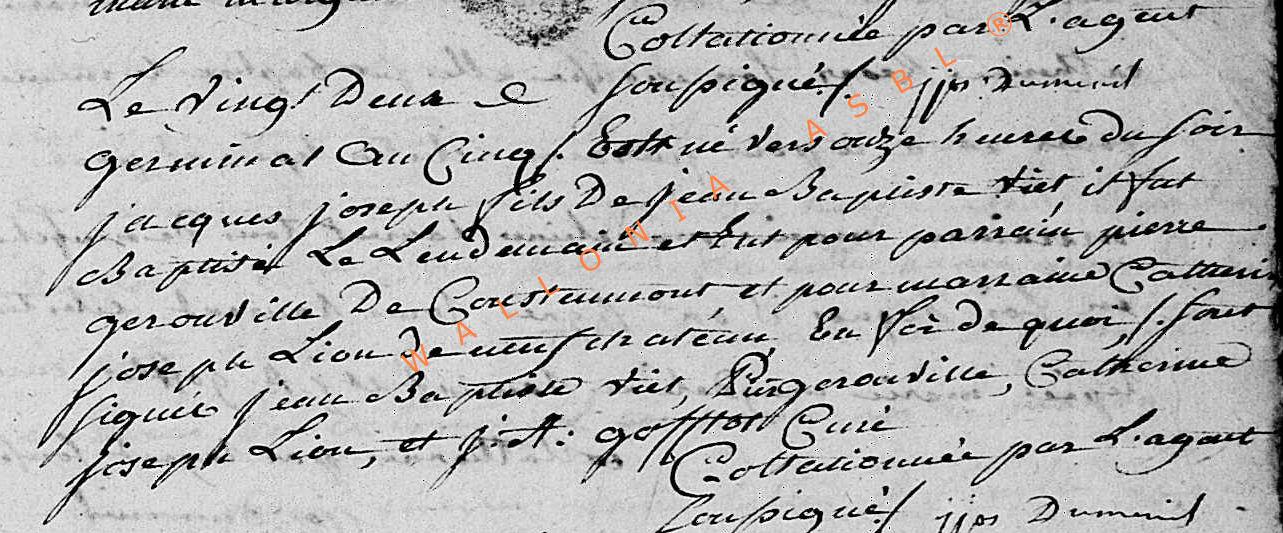 Collationnée par L'agent
Le vingt Deux soussigné jjos Dumenil
germinal an Cinq. Est né vers onze heures du soir
jacques joseph fils De jean Baptiste tiet, il fut
Baptisé Le Lendemain et eut pour parrain pierre
gerouville De Coustumont et pour marraine Catherin
joseph Lion de neufchateau En foi de quoi, sont
signés jean Baptiste tiet, gerouville, Catherine
joseph Lion, et Curé
Collationnée par L'agent
soussigné jjos Dumenil
WALLONIA ASBL ®